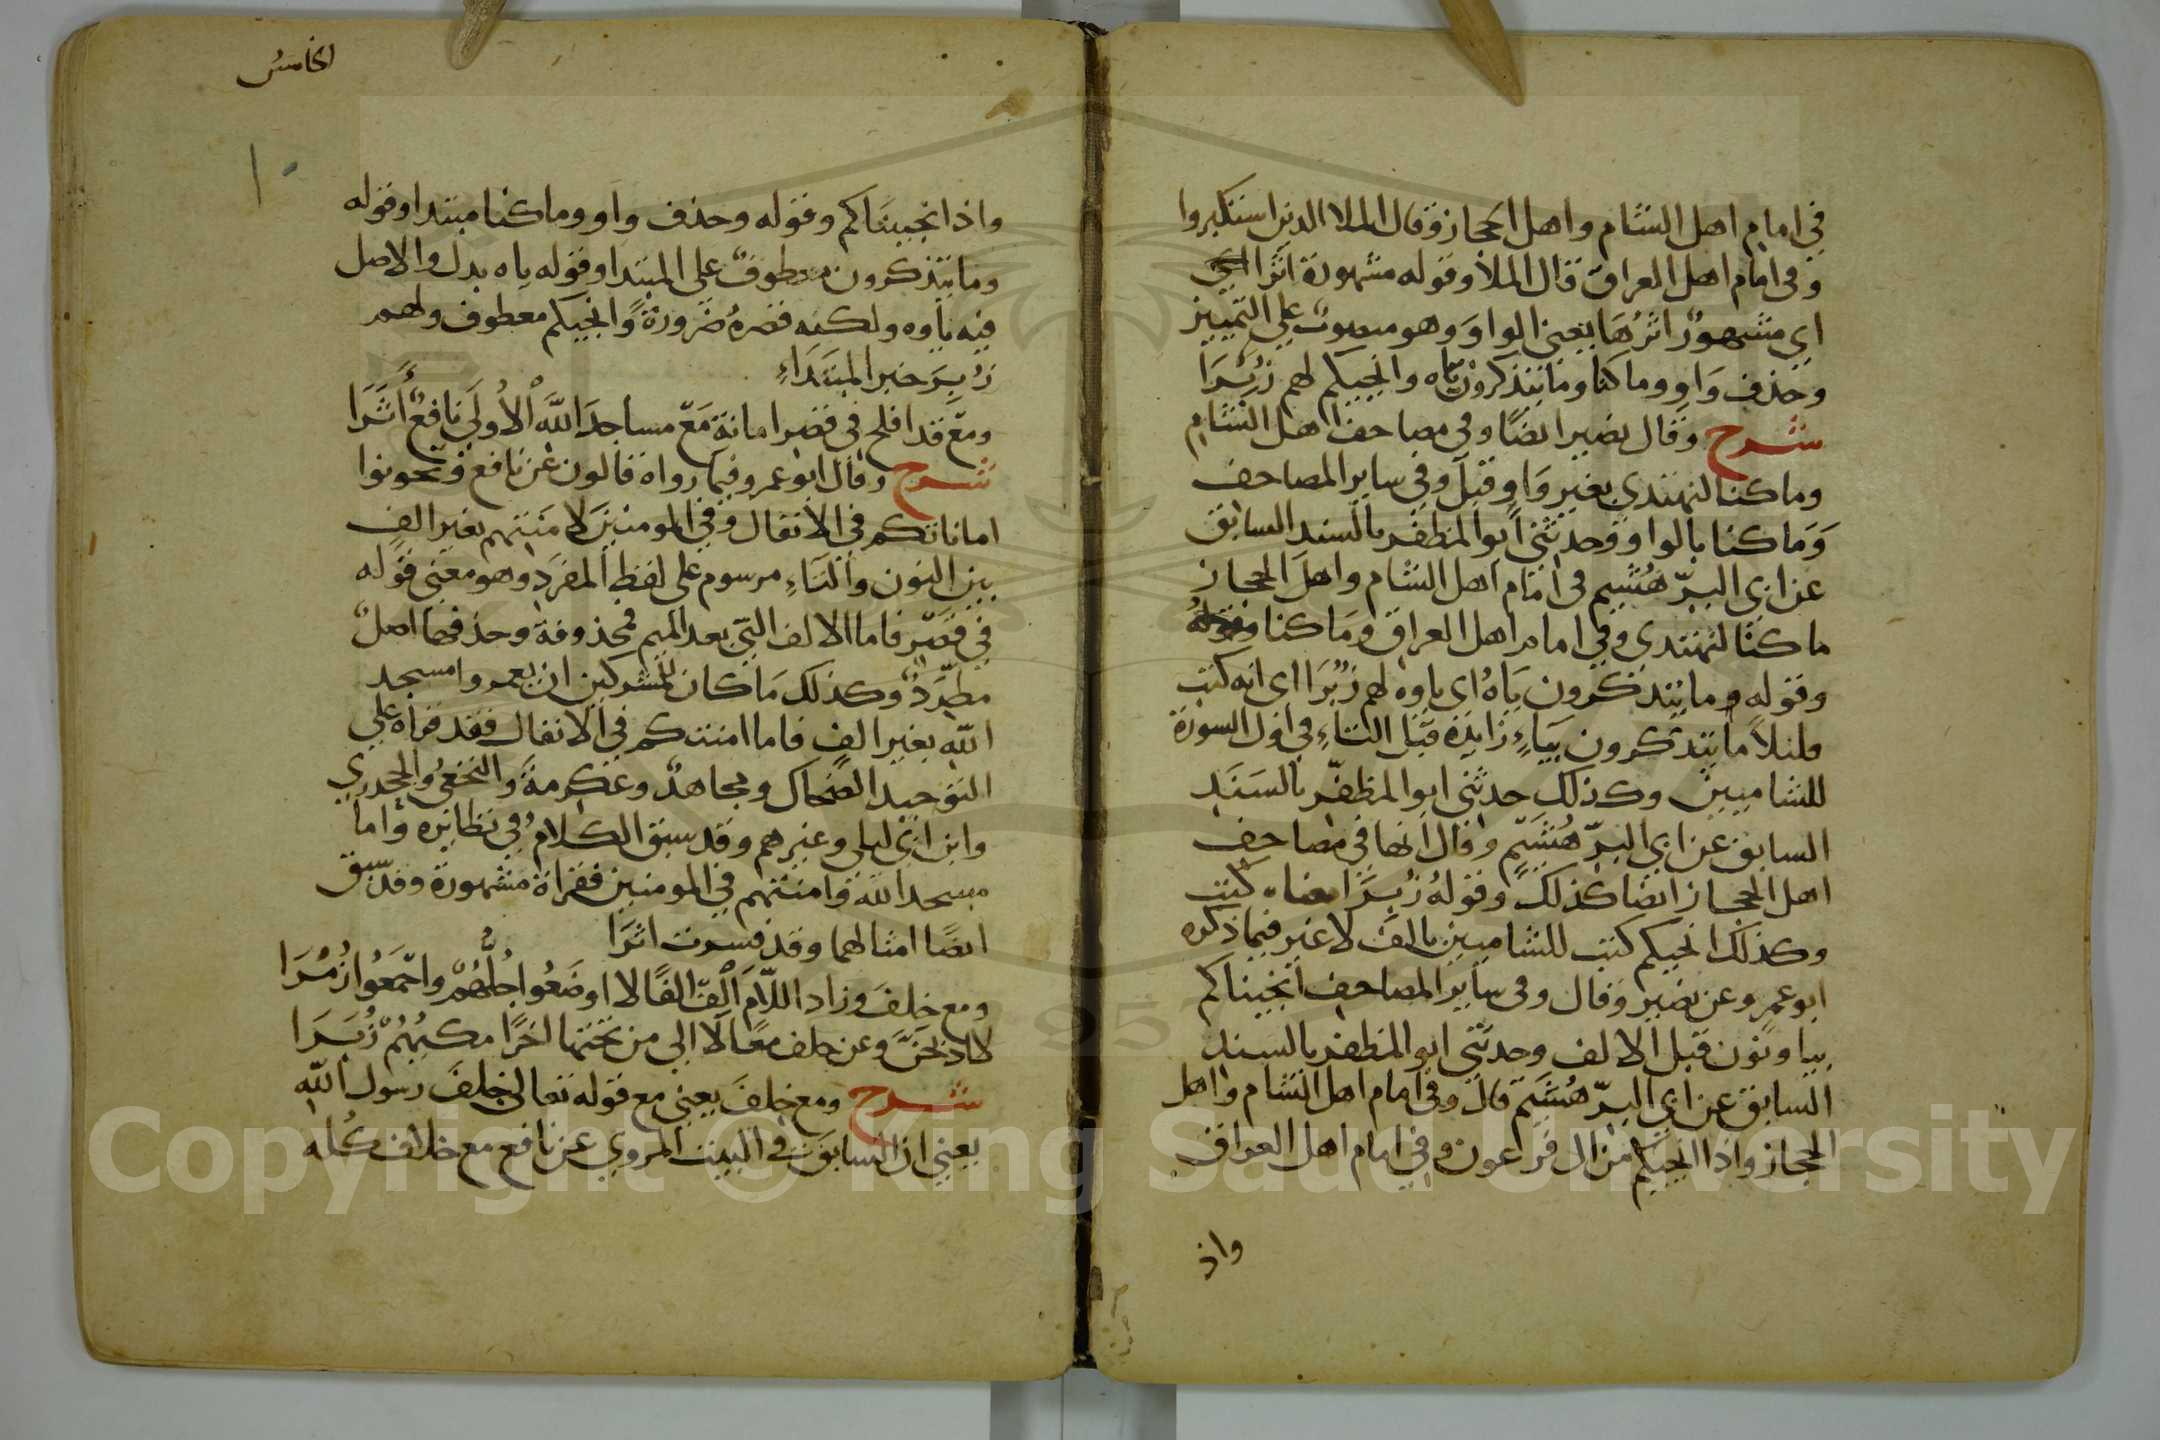 في امام اهل الشام واهل الحجاز وقال الملا الدين استكبروا
وفي امام اهل العراق قال الملا وقوله مشهورة اثرا اي
اي مشهورٌ اثرُها يعني الواوَ وهو منصوبٌ على التمييز
وحذف وَاوِ وما كنا وما نتذكرون ياه وانجيكم لهم زُبِرَا
شرح وقال نصير ايضًا وفي مصاحف اهل الشام
وما كنا لنهتدي بغير وَاوٍ قبل وفي ساير المصاحف
وَمَا كنا بالواو وحدثني ابو المظفر بالسند السابق
عن ابي البرّ هُشَيم في امام اهل الشام واهل الحجاز
ما كنا لنهتدي وفي امام اهل العراق وَمَا كنا
وقوله وما نتذكرون يَاهُ اي ياوه لهم زُبِرَا اي انه كتب
ما نتذكرون بيَاءٍ زايدة قبل التاءِ في اول السورة
للشاميين وكذلك حدثني ابو المظفّر بالسَنَد
السابق عن ابي البرّ هُشَيْمٍ وقال انها في مصاحف
اهل الحجاز ايضا كذلك وقولهُ زُبِرَا معناه كتبت
وكذلك انجيكم كتبت للشاميين بالف لا غير فيما ذكره
ابو عمرو عن نصير وقال وفي ساير المصاحف انجيناكم
بيا ونون قبل الالف وحدثني ابو المظفر بالسند
السابق عن ابي البرّ هُشَيم قال وفي امام اهل الشام واهل
الحجاز واذا انجيكم من ال فرعون وفي امام اهل العراق
واذ
الخامس
١٠
واذا انجيناكم وقوله وحذف واو وما كنا مبتدا وقوله
وما نتذكرون معطوفٌ على المبتدا وقوله ياه بدل والاصل
فيه ياوه ولكنه قصرهُ ضرورةً وانجيكم معطوف ولهم
زُبِرَ خبر المبتداءِ
ومعْ قد افلح في قصرِ امانة مَعْ مساجدَ اللَّه الأُولَى نافعٌ أَثَرَا
شرح وقال ابو عمرو فيما رواه قالون عن نافع وتخونوا
اماناتكم في الانفال وفي المومنين لِامَنتهم بغير الفٍ
بين النون والتاءِ مرسوم على لفظ المفرد وهو معنى قوله
في قصرِ فاما الالف التي بعد الميم فمحذوفة وحذفها اصلٌ
مطّردٌ وكذلك مَا كان للمشركين ان يعمروا مسجد
اللّه بغير الفٍ فاما امنتكم في الانفال فقد قراه على
التوحيد الضحاك ومجاهدٌ وعكرمةُ والنخعيُ والجحدري
وابن ابي ليلى وغيرهم وقد سبق الكلامُ في نظائره واما
مسجد الله وامنتهم في المومنين فقراة مشهورة وقد سبق
ايضًا امثالهما وقد فسرت اثرَا
ومع خلفَ وزاد اللّام الِفٌ الفًا لااوضَعُوا جُلُّهُمْ واجْمَعُوا زُمُرَا
لااذبحنَّ وعن خلف معًا لَاالى من تحتها اخرًا مكيهُمْ زُبَرَا
شرح ومع خلفَ يعني مع قوله تعالى خلفَ رسول اللّه
يعني ان السابق في البيت المروي عن نافع مع خلاف كُله